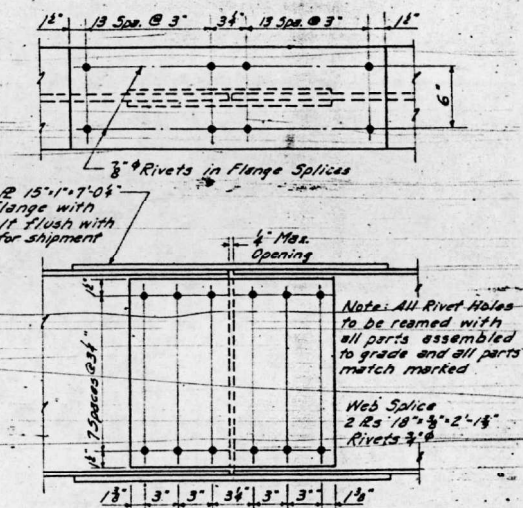 1½" 13 Spa. @ 3" 3¼" 13 Spa. @ 3" 1½"
6"
⅞" φ Rivets in Flange Splices
℞ 15"×1"×7'-0¼"
lange with
lt flush with
for shipment
¼" Max.
Opening
1½"
7 Spaces @ 3¼"
1½"
Note: All Rivet Holes
to be reamed with
all parts assembled
to grade and all parts
match marked
Web Splice
2 ℞s 18"×⅜"×2'-1¾"
Rivets ¾" φ
1⅜" 3" 3" 3¼" 3" 3" 1⅜"